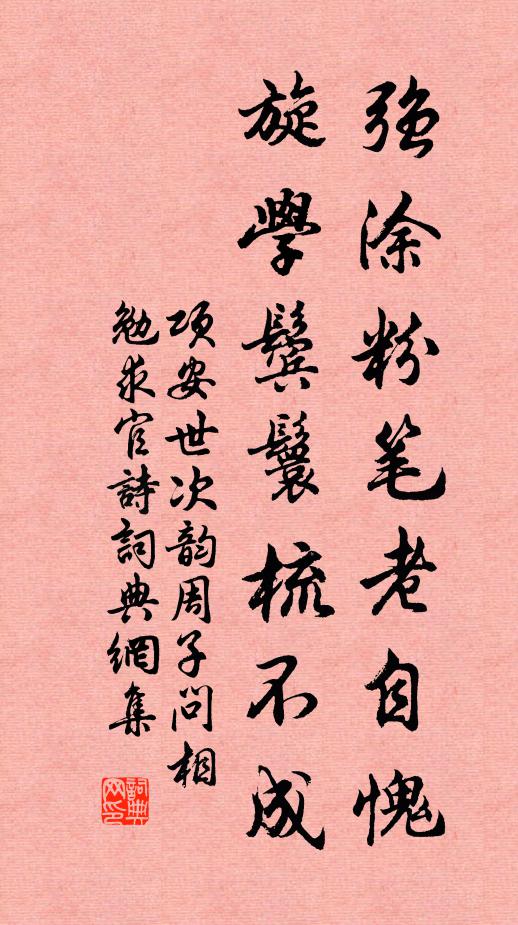 强涂粉笔老自愧
旋學鬓鬟梳不成
项安世次韵周子问相
勉求官詩詞典網集
詞典
网印